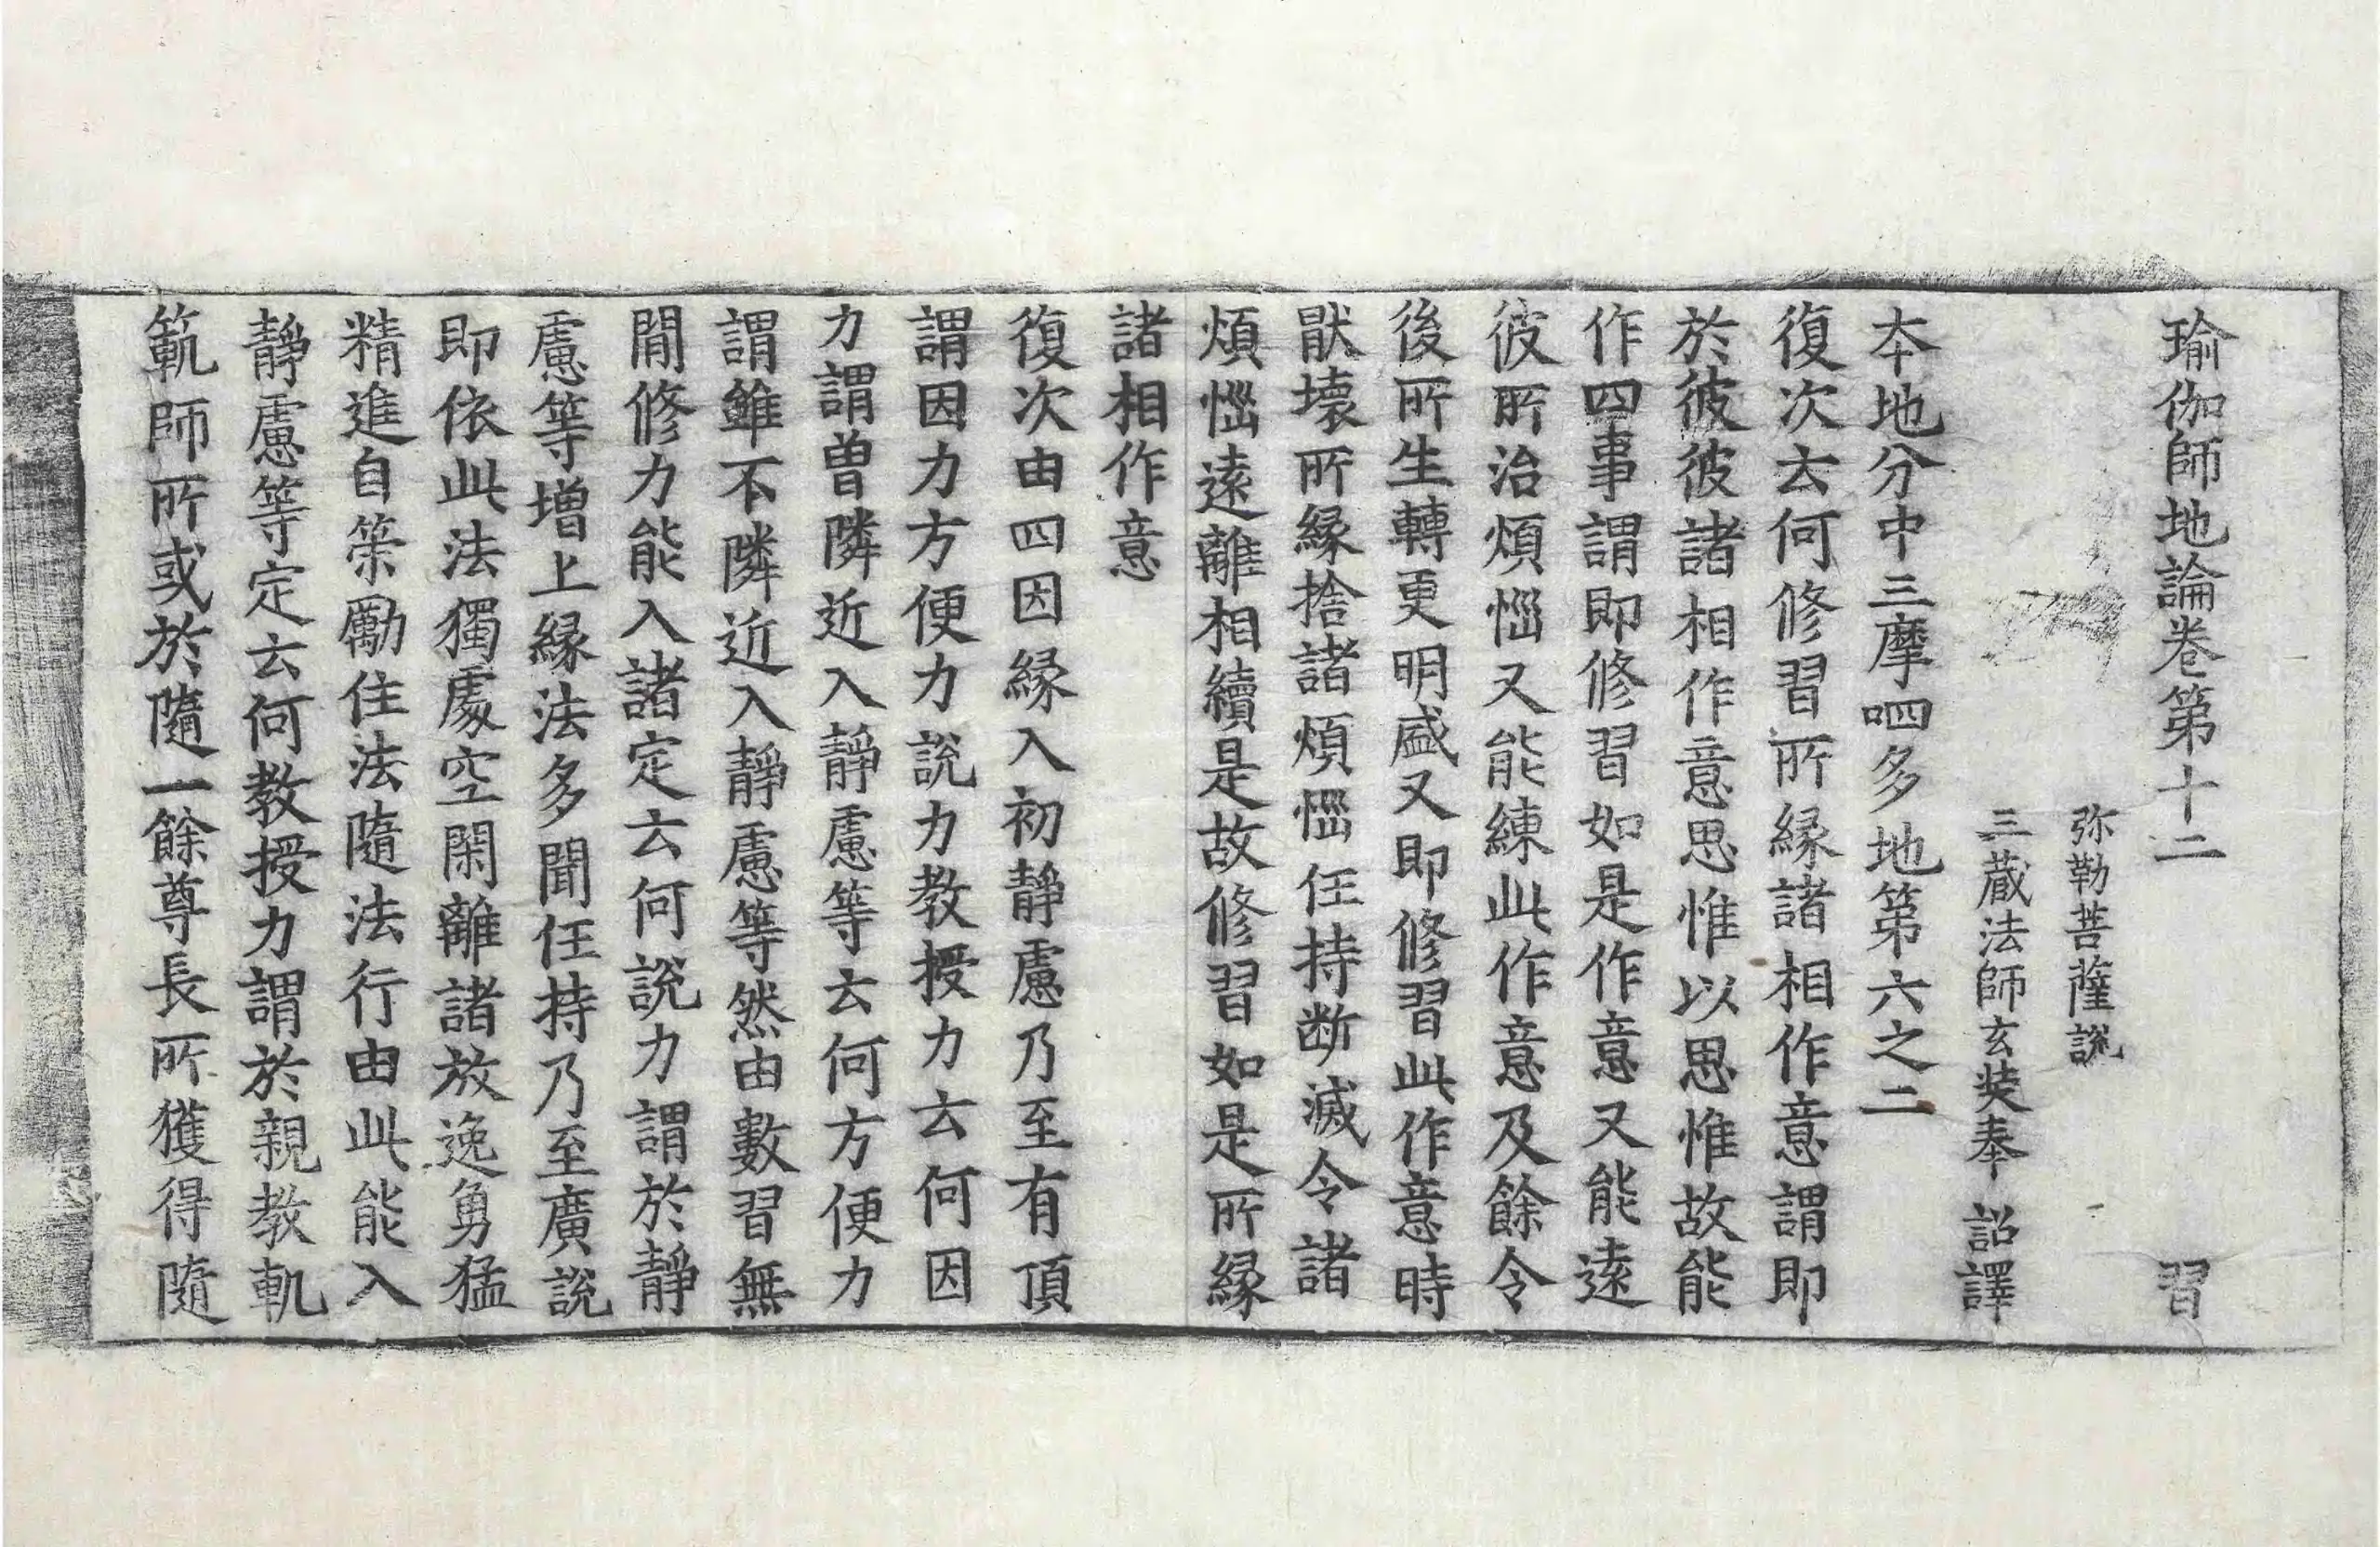 瑜伽師地論卷第十二 習
弥勒菩薩說
三蔵法師玄奘奉 詔譯
本地分中三摩呬多地第六之二
復次云何修習所緣諸相作意謂即
於彼彼諸相作意思惟以思惟故能
作四事謂即修習如是作意又能遠
彼所治煩惱又能練此作意及餘令
後所生轉更明盛又即修習此作意時
猒壞所緣捨諸煩惱任持断滅令諸
煩惱遠離相續是故修習如是所緣
諸相作意
復次由四因緣入初靜慮乃至有頂
謂因力方便力說力教授力云何因
力謂曾隣近入靜慮等云何方便力
謂雖不隣近入靜慮等然由數習無
間修力能入諸定云何說力謂於靜
慮等增上緣法多聞任持乃至廣說
即依此法獨處空閑離諸放逸勇猛
精進自策勵住法隨法行由此能入
靜慮等定云何教授力謂於親教軌
範師所或於隨一餘尊長所獲得隨